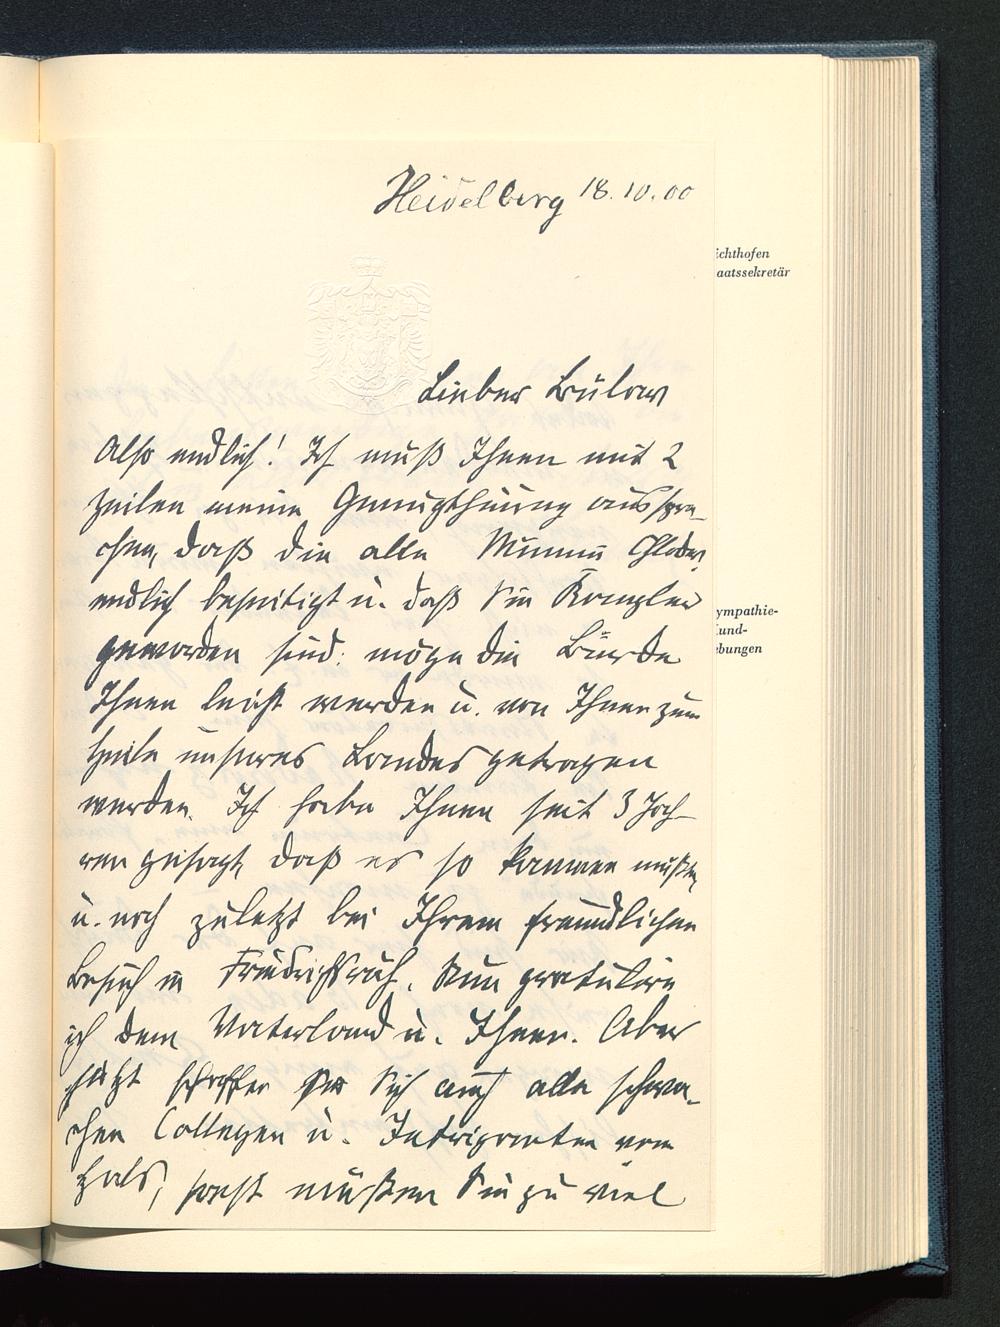 Heidelberg 18.10.00
ichthofen
aatssekretär
Lieber Bülow
Also endlich! Ich muß Ihnen mit 2
Zeilen meine Genugthuung ausspre-
chen, daß die alte Mumie Chlodw.
endlich beseitigt u. daß Sie Kanzler
geworden sind: möge die Bürde
Ihnen leicht werden u. von Ihnen zum
Heile unseres Landes getragen
werden. Ich habe Ihnen seit 3 Jah-
ren gesagt, daß es so kommen mußte,
u. noch zuletzt bei Ihrem freundlichen
Besuch in Friedrichsruh. Nun gratulire
ich dem Vaterland u. Ihnen. Aber
jetzt schaffen Sie Sich auch alle schwa-
chen Collegen u. Intriganten vom
Hals, sonst müßen Sie zu viel
ympathie-
und-
ebungen